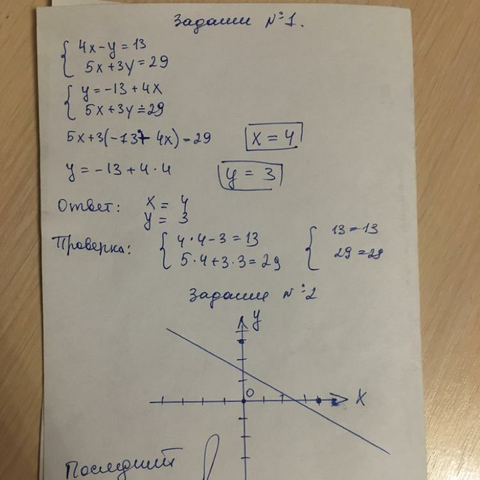 Задание №1.
4x-y=13
5x+3y=29
y=-13+4x
5x+3y=29
5x+3(-13+4x)=29 x=4
y=-13+4·4 y=3
Ответ: x=4
y=3
Проверка: 4·4-3=13 13=13
5·4+3·3=29 29=29
Задание №2
y
0 x
Последний